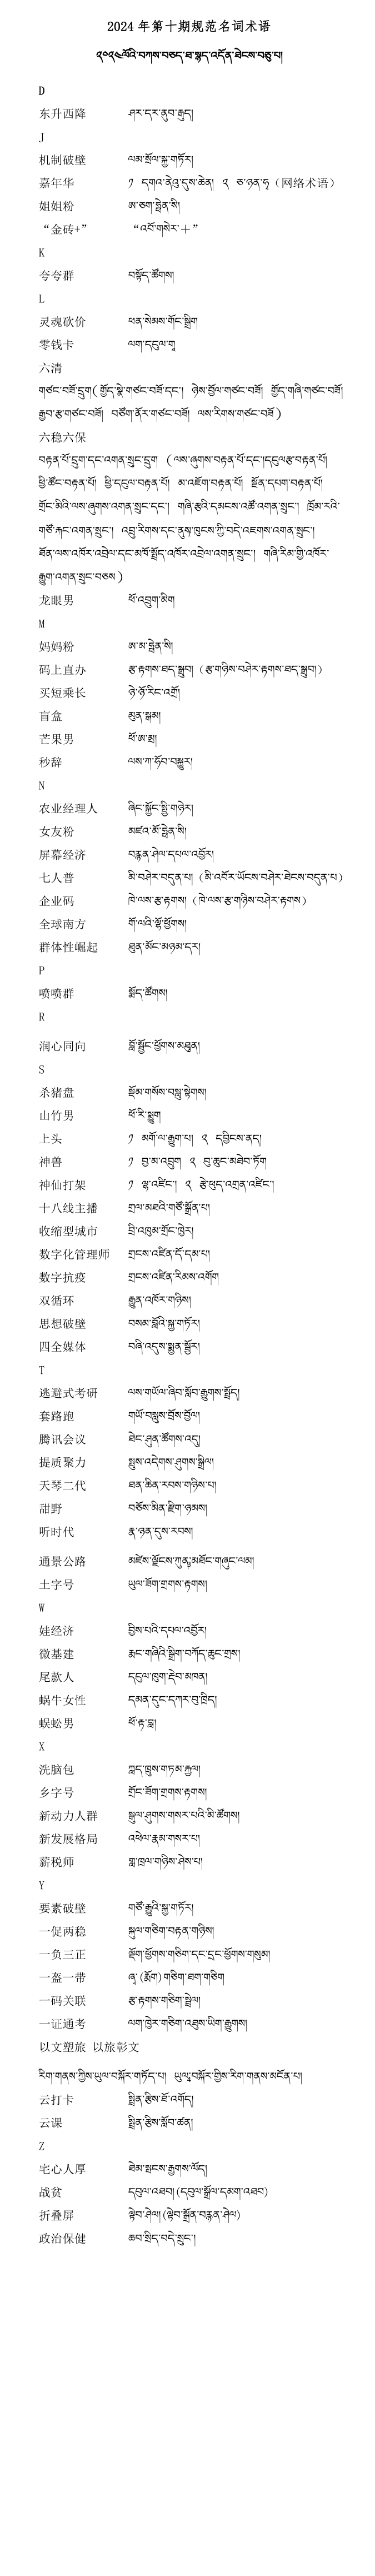 2024 年第十期规范名词术语
༢༠༢༤ལོའི་བཀས་བཅད་ཐ་སྙད་འདོན་ཐེངས་བཅུ་པ།
D
东升西降 ཤར་དར་ནུབ་རྒུད།
J
机制破壁 ལམ་སྲོལ་སྐྱ་གཏོར།
嘉年华 ༡ དགའ་ནེའུ་དུས་ཆེན། ༢ ཅ་ཉན་ཧྭ（网络术语）
姐姐粉 ཨ་ཅག་ཧྥེན་སི།
“金砖+” “འབོ་གསེར་＋”
K
夸夸群 བསྟོད་ཚོགས།
L
灵魂砍价 ཕན་སེམས་གོང་སྒྲིག
零钱卡 ལག་དངུལ་ཀཱ
六清
གཙང་བཟོ་དྲུག(གྱོད་སྣེ་གཙང་བཟོ་དང་། ཉེས་བྱོལ་གཙང་བཟོ། གྱོད་གཞི་གཙང་བཟོ།
རྒྱབ་རྩ་གཙང་བཟོ། བཙོག་ནོར་གཙང་བཟོ། ལས་རིགས་གཙང་བཟོ)
六稳六保
བརྟན་པོ་དྲུག་དང་འགན་སྲུང་དྲུག (ལས་ཞུགས་བརྟན་པོ་དང་།དངུལརྩ་བརྟན་པོ།
ཕྱི་ཚོང་བརྟན་པོ། ཕྱི་དངུལ་བརྟན་པོ། མ་འཇོག་བརྟན་པོ། སྔོན་དཔག་བརྟན་པོ།
གྲོང་མིའི་ལས་ཞུགས་འགན་སྲུང་དང་། གཞི་རྩའི་དམངས་འཚོ་འགན་སྲུང་། ཁྲོམ་རའི་
གཙོ་རྐང་འགན་སྲུང་། འབྲུ་རིགས་དང་ནུས་ཁུངས་ཀྱི་བདེ་འཇགས་འགན་སྲུང་།
ཐོན་ལས་འཁོར་འབྲེལ་དང་མཁོ་སྤྲོད་འཁོར་འབྲེལ་འགན་སྲུང་། གཞི་རིམ་གྱི་འཁོར་
རྒྱུག་འགན་སྲུང་བཅས)
龙眼男 ཕོ་འབྲུག་མིག
M
妈妈粉 ཨ་མ་ཧྥེན་སི།
码上直办 རྩ་རྟགས་ཐད་སྒྲུབ། (རྩ་གཉིས་བཤེར་རྟགས་ཐད་སྒྲུབ།)
买短乘长 ཉེ་ཉོ་རིང་འགྲོ།
盲盒 མུན་སྒམ།
芒果男 ཕོ་ཨ་མྲ།
秒辞 ལས་ཀ་ཧོབ་བསྐྱུར།
N
农业经理人 ཞིང་སྐྱོང་སྤྱི་གཉེར།
女友粉 མཛའ་མོ་ཧྥེན་སི།
屏幕经济 བརྙན་ཤེལ་དཔལ་འབྱོར།
七人普 མི་བཤེར་བདུན་པ། (མི་འབོར་ཡོངས་བཤེར་ཐེངས་བདུན་པ)
企业码 ཁེ་ལས་རྩ་རྟགས། (ཁེ་ལས་རྩ་གཉིས་བཤེར་རྟགས)
全球南方 གོ་ལའི་ལྷོ་ཕྱོགས།
群体性崛起 ཐུན་མོང་མཉམ་དར།
P
喷喷群 སྨོད་ཚོགས།
R
润心同向 བློ་སྦྱོང་ཕྱོགས་མཐུན།
S
杀猪盘 སྡོམ་གསོས་བསླུ་སྟེགས།
山竹男 ཕོ་རི་སྨྱུག
上头 ༡ མགོ་ལ་རྒྱུག་པ། ༢ དབྱིངས་ནད།
神兽 ༡ བྱ་མ་འབྲུག ༢ བུ་ཆུང་མཐེབ་ཏོག
神仙打架 ༡ ལྷ་འཛིང་། ༢ རྩེ་ཕུད་འགྲན་འཛིང་།
十八线主播 གྲལ་མཐའི་གཙོ་སྒྲོན་པ།
收缩型城市 བྲི་འཁུམ་གྲོང་ཁྱེར།
数字化管理师 གྲངས་འཛིན་དོ་དམ་པ།
数字抗疫 གྲངས་འཛིན་རིམས་འགོག
双循环 རྒྱུན་འཁོར་གཉིས།
思想破壁 བསམ་བློའི་སྐྱ་གཏོར།
四全媒体 བཞི་འདུས་སྨྱན་སྦྱོར།
T
逃避式考研 ལས་གཡོལ་ཞིབ་སློབ་རྒྱུགས་སྤྲོད།
套路跑 གཡོ་བསླུས་བྲོས་བྱོལ།
腾讯会议 ཐེང་ཤུན་ཚོགས་འདུ།
提质聚力 སྤུས་འདེགས་ཤུགས་སྒྲིལ།
天琴二代 ཐན་ཆིན་རབས་གཉིས་པ།
甜野 བཅོས་མིན་རྫིག་ཉམས།
听时代 རྣ་ཉན་དུས་རབས།
通景公路 མཛེས་ལྗོངས་ཀུན་མཐོང་གཞུང་ལམ།
土字号 ཡུལ་ཐོག་གྲགས་རྟགས།
W
娃经济 བྱིས་པའི་དཔལ་འབྱོར།
微基建 རྨང་གཞིའི་སྒྲིག་བཀོད་ཆུང་གྲས།
尾款人 དངུལ་ཁུག་རྡེབ་མཁན།
蜗牛女性 དམན་དུང་དཀར་བུ་ཁྲིད།
蜈蚣男 ཕོ་རྟ་བླ།
X
洗脑包 ཀླད་ཁྲུས་གཏམ་རྐྱལ།
乡字号 གྲོང་ཐོག་གྲགས་རྟགས།
新动力人群 སྒུལ་ཤུགས་གསར་པའི་མི་ཚོགས།
新发展格局 འཕེལ་རྣམ་གསར་པ།
薪税师 གླ་ཁྲལ་གཉིས་ཤེས་པ།
Y
要素破壁 གཙོ་རྒྱུའི་སྐྱ་གཏོར།
一促两稳 སྐུལ་གཅིག་བརྟན་གཉིས།
一负三正 ལྡོག་ཕྱོགས་གཅིག་དང་དྲང་ཕྱོགས་གསུམ།
一盔一带 ཞྭ་(རྨོག)གཅིག་ཐག་གཅིག
一码关联 རྩ་རྟགས་གཅིག་སྦྲེལ།
一证通考 ལག་ཁྱེར་གཅིག་འཐུས་ཡིག་རྒྱུགས།
以文塑旅 以旅彰文
རིག་གནས་ཀྱིས་ཡུལ་བསྐོར་གཏོད་པ། ཡུལ་བསྐོར་གྱིས་རིག་གནས་མངོན་པ།
云打卡 སྤྲིན་རྩིས་ཐོ་འགོད།
云课 སྤྲིན་རྩིས་སློབ་ཚན།
Z
宅心人厚 ཐེམ་སྤངས་རྒྱགས་ལོད།
战贫 དབུལ་འཐབ།(དབུལ་སྒྲོལ་དམག་འཐབ)
折叠屏 ལྟེབ་ཤེལ།(ལྟེབ་སྒྲོན་བརྙན་ཤེལ)
政治保健 ཆབ་སྲིད་བདེ་སྲུང་།